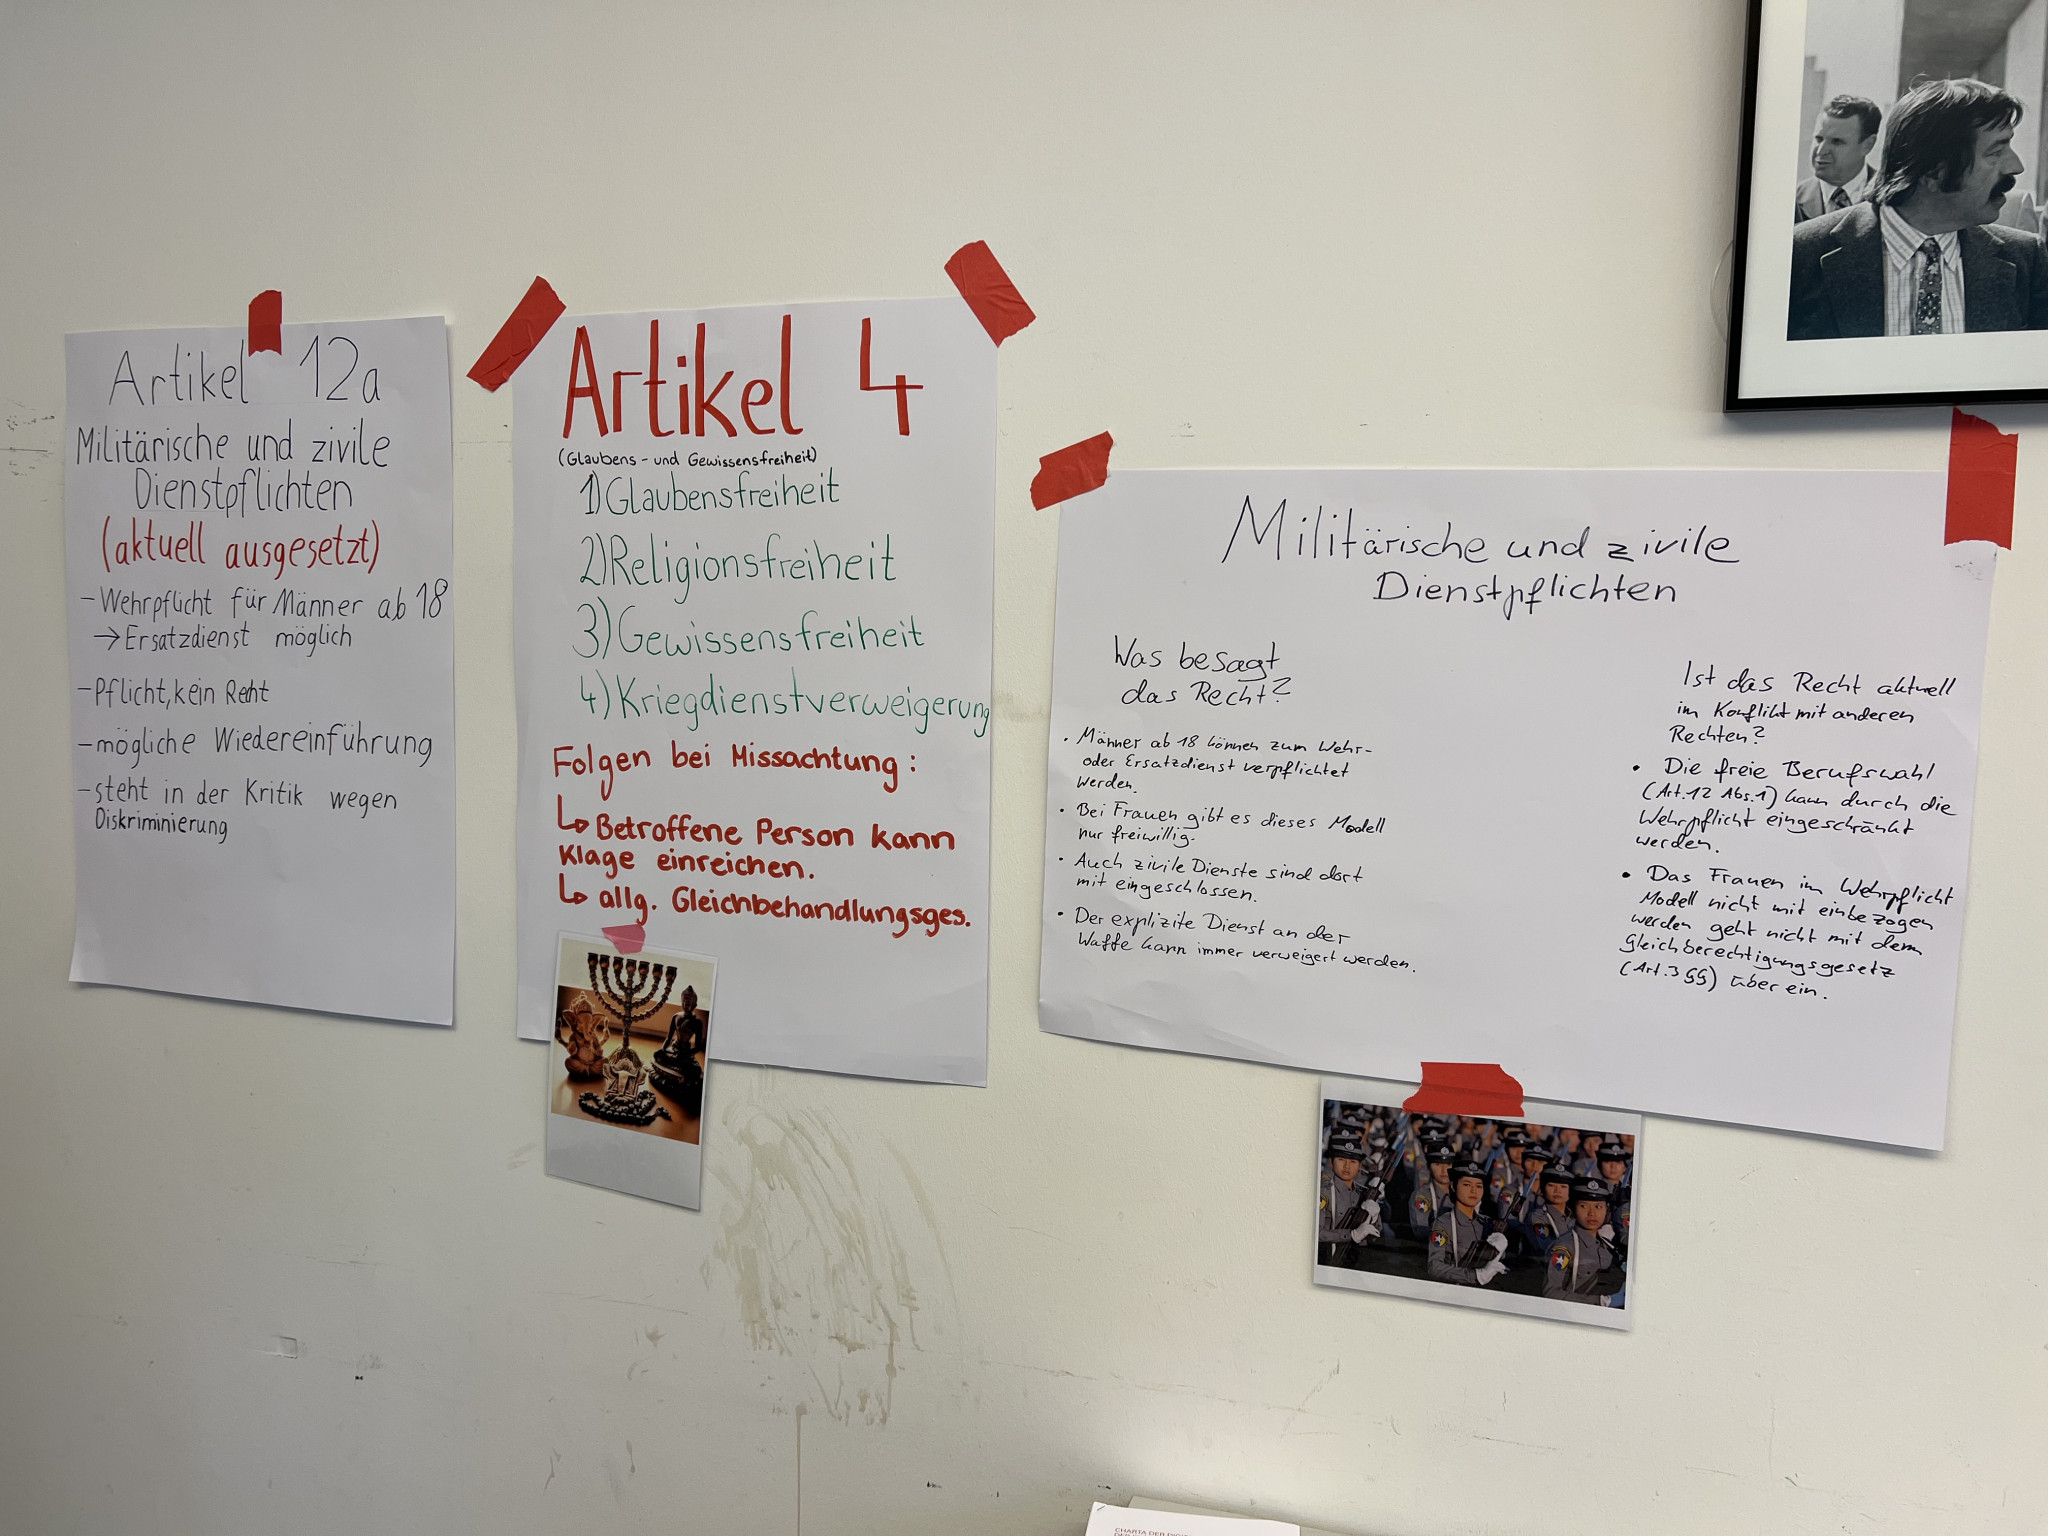 Artikel 12a
Militärische und zivile
Dienstpflichten
(aktuell ausgesetzt)
- Wehrpflicht für Männer ab 18
→ Ersatzdienst möglich
- Pflicht, kein Recht
- mögliche Wiedereinführung
- steht in der Kritik wegen
Diskriminierung
Artikel 4
(Glaubens- und Gewissensfreiheit)
1) Glaubensfreiheit
2) Religionsfreiheit
3) Gewissensfreiheit
4) Kriegdienstverweigerung
Folgen bei Missachtung:
↳ Betroffene Person kann
Klage einreichen.
↳ allg. Gleichbehandlungsges.
Militärische und zivile
Dienstpflichten
Was besagt
das Recht?
• Männer ab 18 können zum Wehr-
oder Ersatzdienst verpflichtet
werden.
• Bei Frauen gibt es dieses Modell
nur freiwillig.
• Auch zivile Dienste sind dort
mit eingeschlossen.
• Der explizite Dienst an der
Waffe kann immer verweigert werden.
Ist das Recht aktuell
im Konflikt mit anderen
Rechten?
• Die freie Berufswahl
(Art. 12 Abs. 1) kann durch die
Wehrpflicht eingeschränkt
werden.
• Das Frauen im Wehrpflicht
Modell nicht mit einbezogen
werden geht nicht mit dem
Gleichberechtigungsgesetz
(Art. 3 GG) über ein.
CHARTA DER